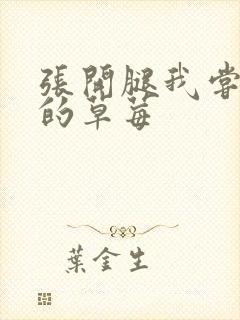 張開腿我嘗
的草莓
葉金生